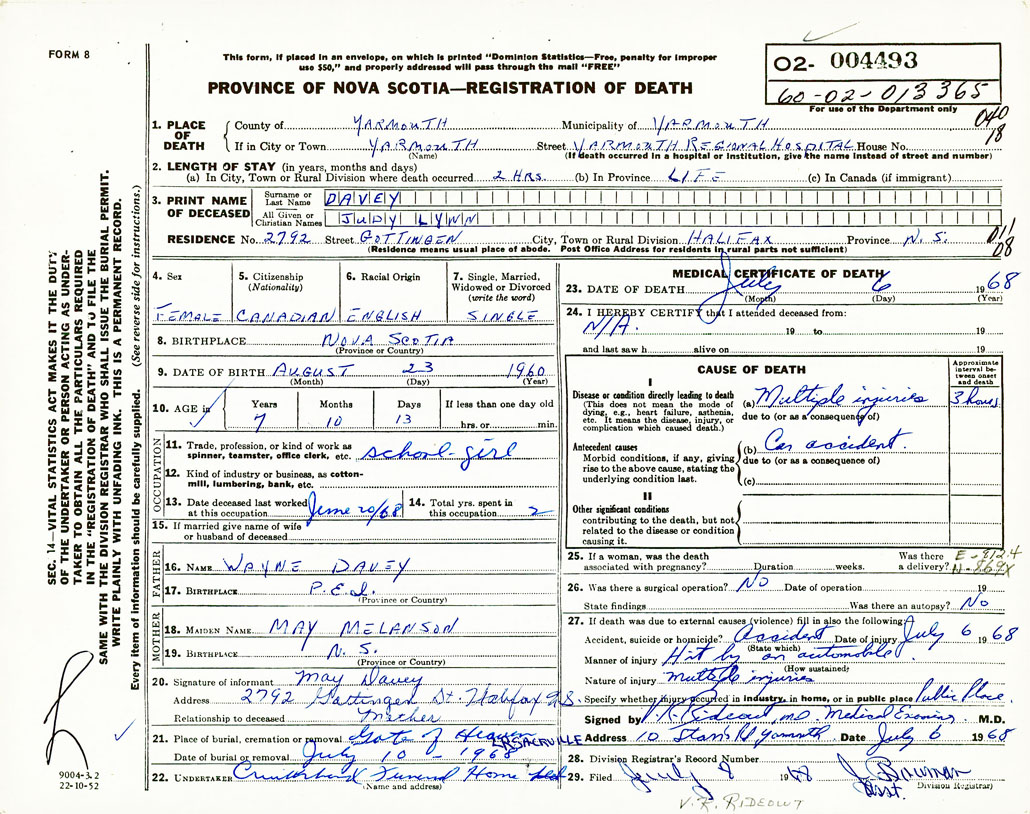 FORM 8
This form, if placed in an envelope, on which is printed "Dominion Statistics—Free, penalty for improper
use $50," and properly addressed will pass through the mail "FREE"
PROVINCE OF NOVA SCOTIA—REGISTRATION OF DEATH
02- 004493
60-02-013365
For use of the Department only
040
18
1. PLACE OF DEATH County of YARMOUTH Municipality of YARMOUTH
If in City or Town YARMOUTH Street YARMOUTH REGIONAL HOSPITAL House No.
(Name) (If death occurred in a hospital or institution, give the name instead of street and number)
2. LENGTH OF STAY (in years, months and days)
(a) In City, Town or Rural Division where death occurred 2 HRS. (b) In Province LIFE (c) In Canada (if immigrant)
3. PRINT NAME OF DECEASED
Surname or Last Name DAVEY
All Given or Christian Names JUDY LYNN
RESIDENCE No. 2792 Street GOTTINGEN City, Town or Rural Division HALIFAX Province N.S.
(Residence means usual place of abode. Post Office Address for residents in rural parts not sufficient)
011
08
4. Sex 5. Citizenship (Nationality) 6. Racial Origin 7. Single, Married, Widowed or Divorced (write the word)
FEMALE CANADIAN ENGLISH SINGLE
8. BIRTHPLACE NOVA SCOTIA
(Province or Country)
9. DATE OF BIRTH AUGUST 23 1960
(Month) (Day) (Year)
10. AGE in Years Months Days If less than one day old
7 10 13 hrs. or min.
OCCUPATION
11. Trade, profession, or kind of work as
spinner, teamster, office clerk, etc. school-girl
12. Kind of industry or business, as cotton-
mill, lumbering, bank, etc.
13. Date deceased last worked at this occupation June 20/68 14. Total yrs. spent in this occupation 2
15. If married give name of wife
or husband of deceased
FATHER
16. NAME WAYNE DAVEY
17. BIRTHPLACE P.E.I.
(Province or Country)
MOTHER
18. MAIDEN NAME MAY MELANSON
19. BIRTHPLACE N.S.
(Province or Country)
20. Signature of informant May Davey
Address 2792 Gottingen St. Halifax N.S.
Relationship to deceased Mother
21. Place of burial, cremation or removal Gate of Heaven
LR SACKVILLE
Date of burial or removal July 10 - 1968
22. UNDERTAKER Cruikshank's Funeral Home
(Name and address)
MEDICAL CERTIFICATE OF DEATH
23. DATE OF DEATH July 6 1968
(Month) (Day) (Year)
24. I HEREBY CERTIFY that I attended deceased from:
N/A. 19 to 19
and last saw h alive on 19
CAUSE OF DEATH
Approximate interval between onset and death
I
Disease or condition directly leading to death
(This does not mean the mode of
dying, e.g., heart failure, asthenia,
etc. It means the disease, injury, or
complication which caused death.)
(a) Multiple injuries 3 hours
due to (or as a consequence of)
Antecedent causes
Morbid conditions, if any, giving
rise to the above cause, stating the
underlying condition last.
(b) Car accident
due to (or as a consequence of)
(c)
II
Other significant conditions
contributing to the death, but not
related to the disease or condition
causing it.
25. If a woman, was the death Was there E-812.4
associated with pregnancy? Duration weeks. a delivery? N-869X
26. Was there a surgical operation? No Date of operation 19
State findings Was there an autopsy? No
27. If death was due to external causes (violence) fill in also the following:
Accident, suicide or homicide? Accident Date of injury July 6 1968
(State which)
Manner of injury Hit by an automobile
(How sustained)
Nature of injury Multiple injuries
Specify whether injury occurred in industry, in home, or in public place Public Place
Signed by V.R. Rideout, MD. Medical Examiner M.D.
Address 10 Starrs Rd Yarmouth Date July 6 1968
28. Division Registrar's Record Number
29. Filed July 8 1968 J. Bowman
Asst. Division Registrar)
V. R. RIDEOUT
SEC. 14—VITAL STATISTICS ACT MAKES IT THE DUTY
OF THE UNDERTAKER OR PERSON ACTING AS UNDER-
TAKER TO OBTAIN ALL THE PARTICULARS REQUIRED
IN THE "REGISTRATION OF DEATH" AND TO FILE THE
SAME WITH THE DIVISION REGISTRAR WHO SHALL ISSUE THE BURIAL PERMIT.
WRITE PLAINLY WITH UNFADING INK. THIS IS A PERMANENT RECORD.
Every item of information should be carefully supplied. (See reverse side for instructions.)
9004-3.2
22-10-52